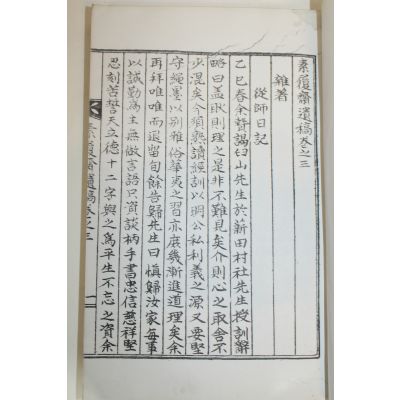 素履齋遺稿卷之三
雜著
從師日記
乙巳春余贄謁臼山先生於薪田村社先生授訓辭
略曰盖敬則理之是非不難見矣介則心之取舍不
少混矣今須熟讀經訓以明公私利義之源又要堅
守繩墨以別雅俗華夷之習亦庶幾漸進道理矣余
再拜唯唯而退留旬餘告歸先生曰慎歸汝家每事
以誠勤爲主無倣言語只資談柄手書忠信慈祥堅
忍刻苦誓天立德十二字與之爲平生不忘之資余
素履齋遺稿卷之三
一